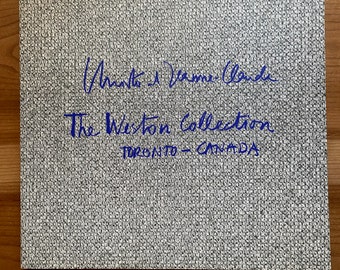 Christo et Jeanne-Claude
The Weston Collection
TORONTO - CANADA